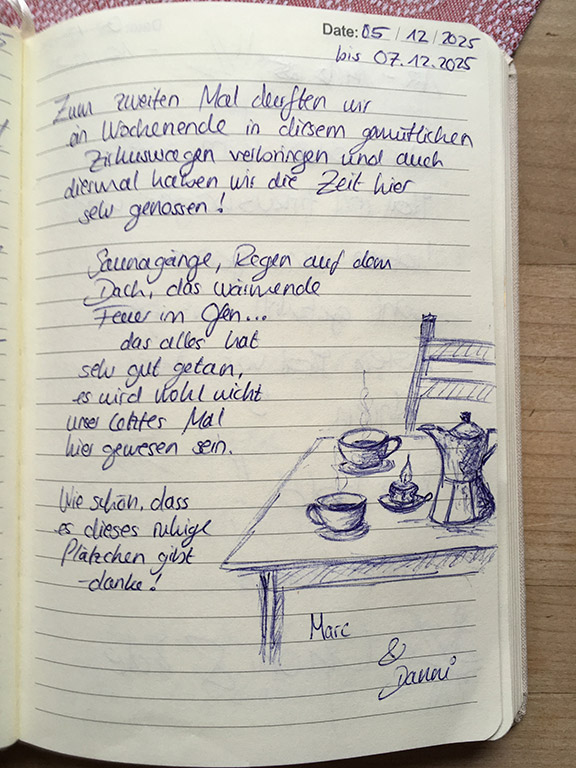 Date: 05 / 12 / 2025
bis 07.12.2025
Zum zweiten Mal durften wir
ein Wochenende in diesem gemütlichen
Zirkuswagen verbringen und auch
diesmal haben wir die Zeit hier
sehr genossen!
Saunagänge, Regen auf dem
Dach, das wärmende
Feuer im Ofen...
das alles hat
sehr gut getan,
es wird wohl nicht
unser letztes Mal
hier gewesen sein.
Wie schön, dass
es dieses ruhige
Plätzchen gibt
-danke!
Marc
&
Danni